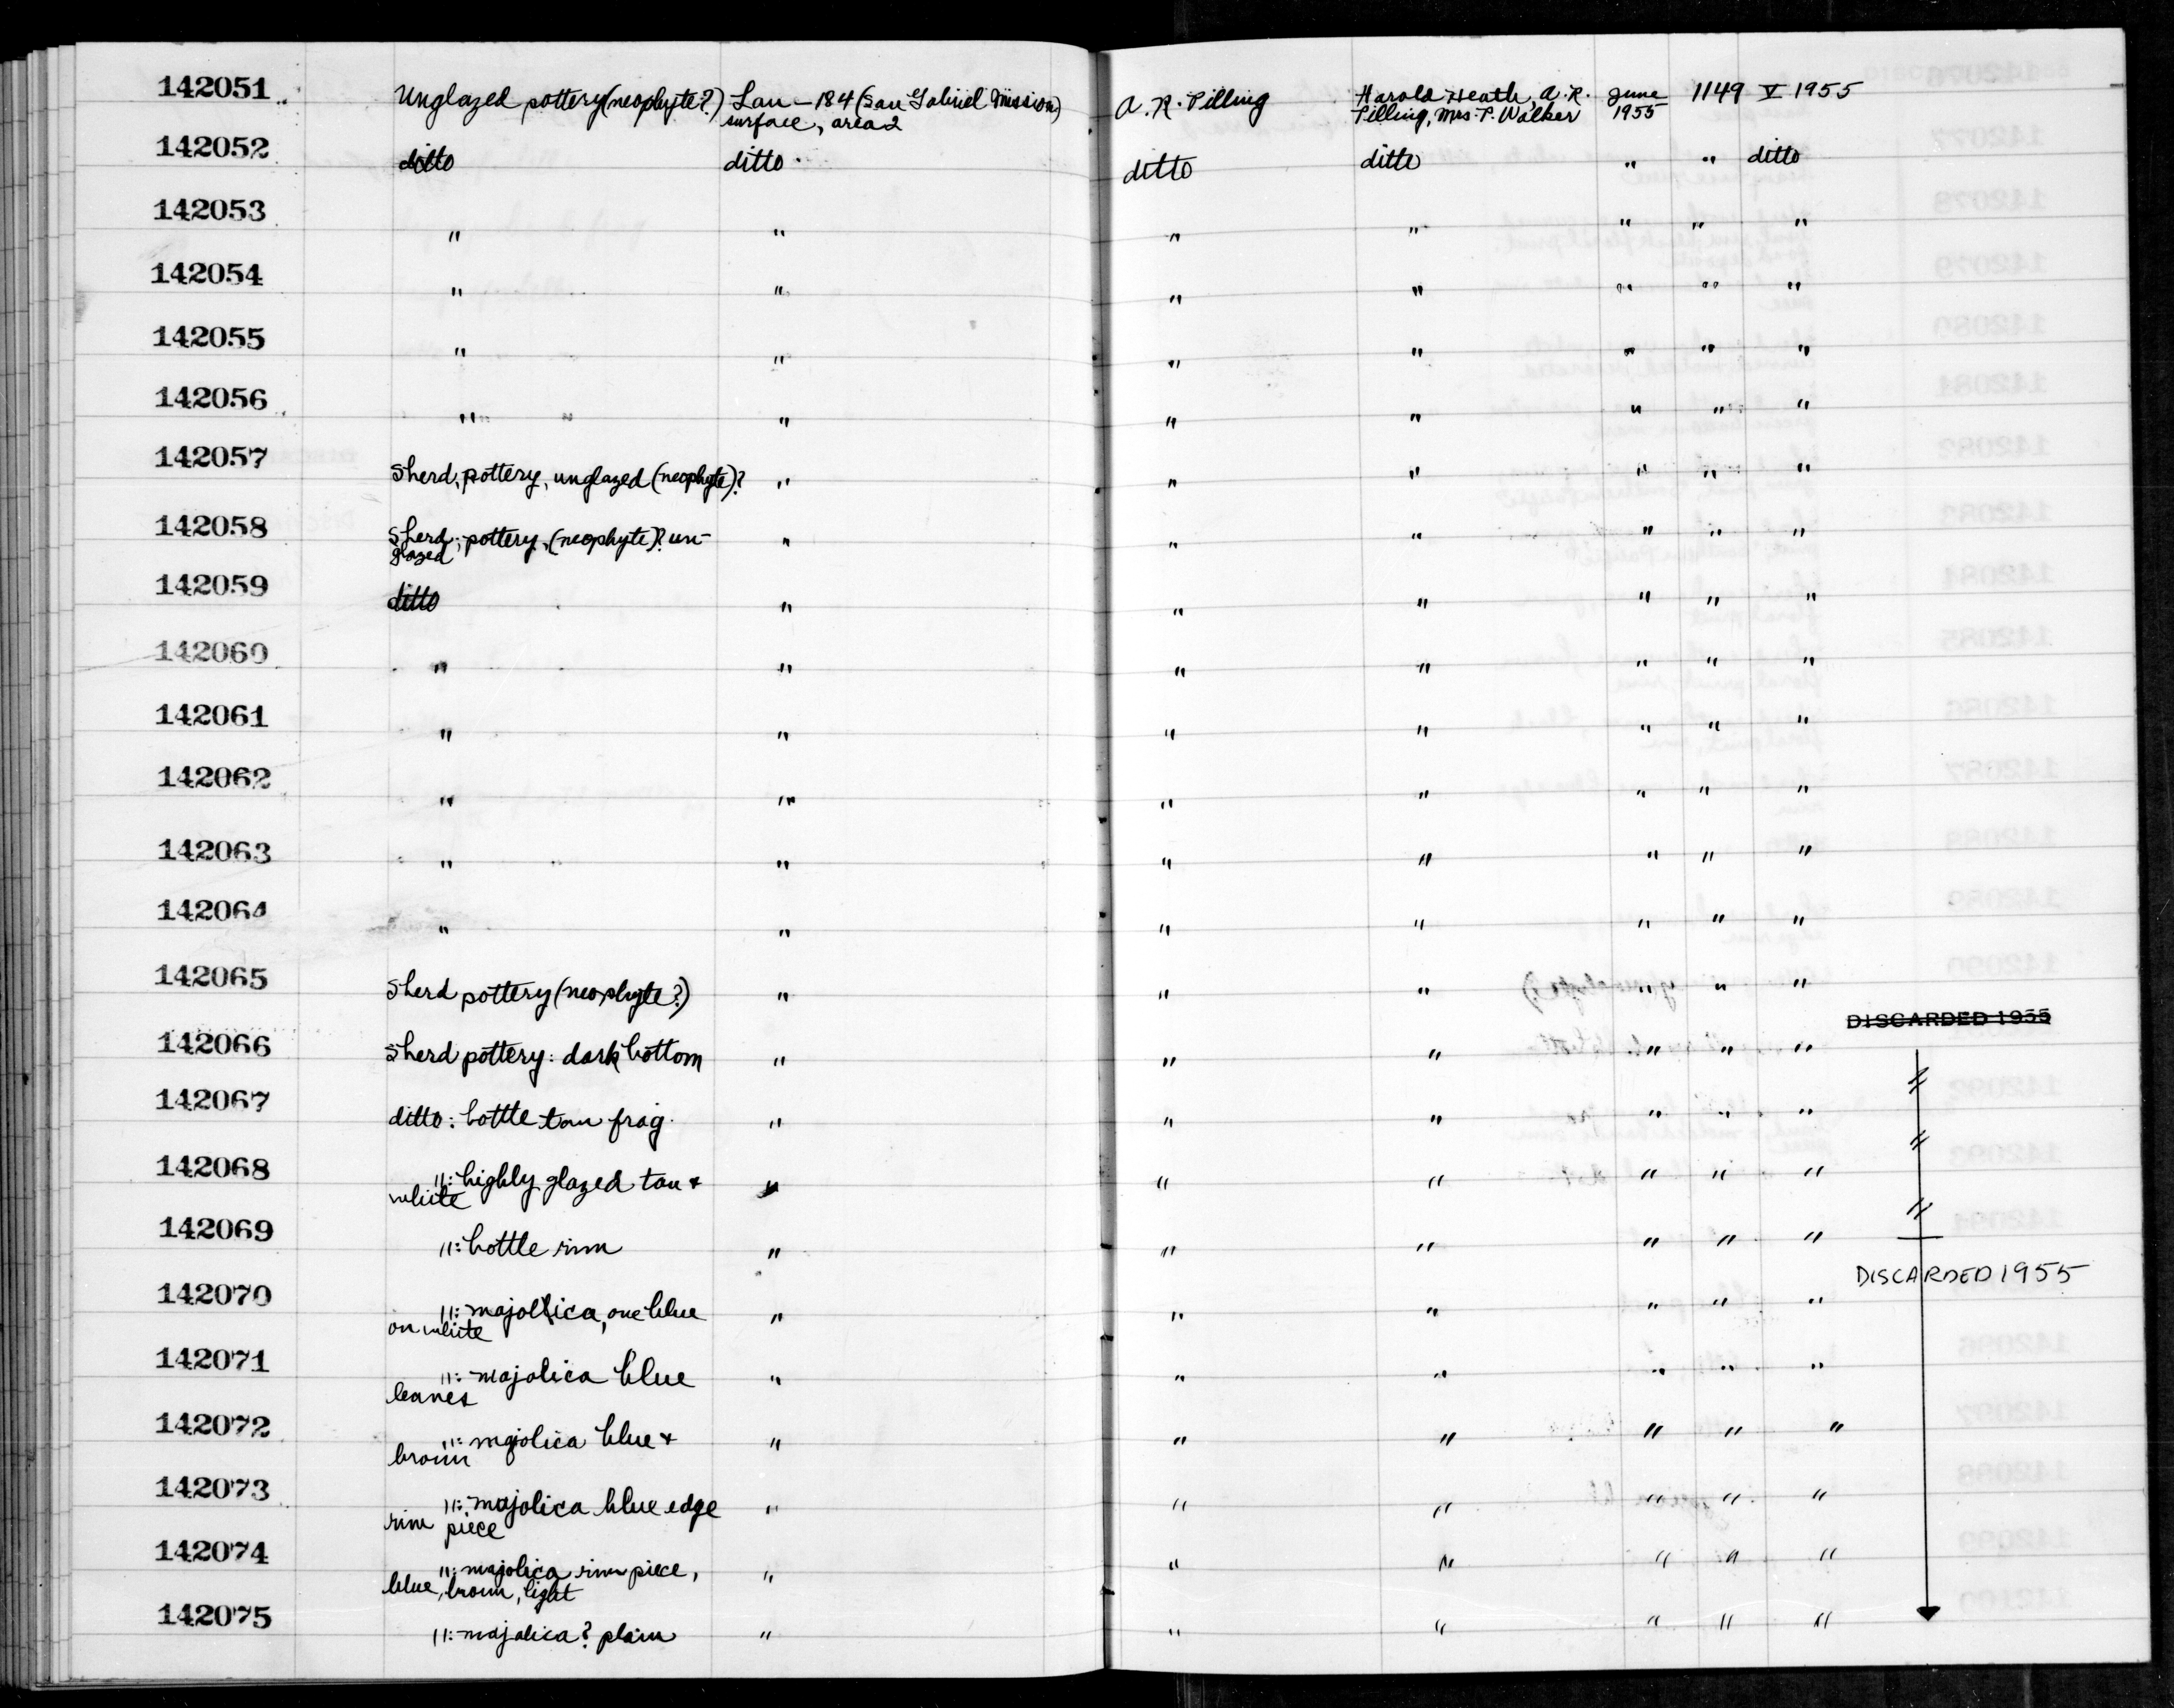 142051 Unglazed pottery (neophyte?) Lan-184 (San Gabriel Mission) A. R. Pilling Harold Heath, A. R. June 1149 V 1955
surface, area 2 Pilling, Mrs. P. Walker 1955
142052 ditto ditto ditto ditto " " ditto
142053 " " " " " " "
142054 " " " " " " "
142055 " " " " " " "
142056 " " " " " " " "
142057 Sherd, pottery, unglazed (neophyte)? " " " " " "
142058 Sherd, pottery, (neophyte)? un- " " " " " "
glazed
142059 ditto " " " " " "
142060 " " " " " " "
142061 " " " " " " "
142062 " " " " " " "
142063 " " " " " " "
142064 " " " " " " "
142065 Sherd pottery (neophyte?) " " " " " "
DISCARDED 1955
142066 Sherd pottery: dark bottom " " " " " "
142067 ditto: bottle tan frag. " " " " " "
142068 ": highly glazed tan & " " " " " "
white
142069 ": bottle rim " " " " " "
DISCARDED 1955
142070 ": majollica, one blue " " " " " "
on white
142071 ": majolica blue " " " " " "
leaves
142072 ": majolica blue & " " " " " "
brown
142073 ": majolica blue edge " " " " " "
rim piece
142074 ": majolica rim piece, " " " " " "
blue, brown, light
142075 ": majolica? plain " " " " " "